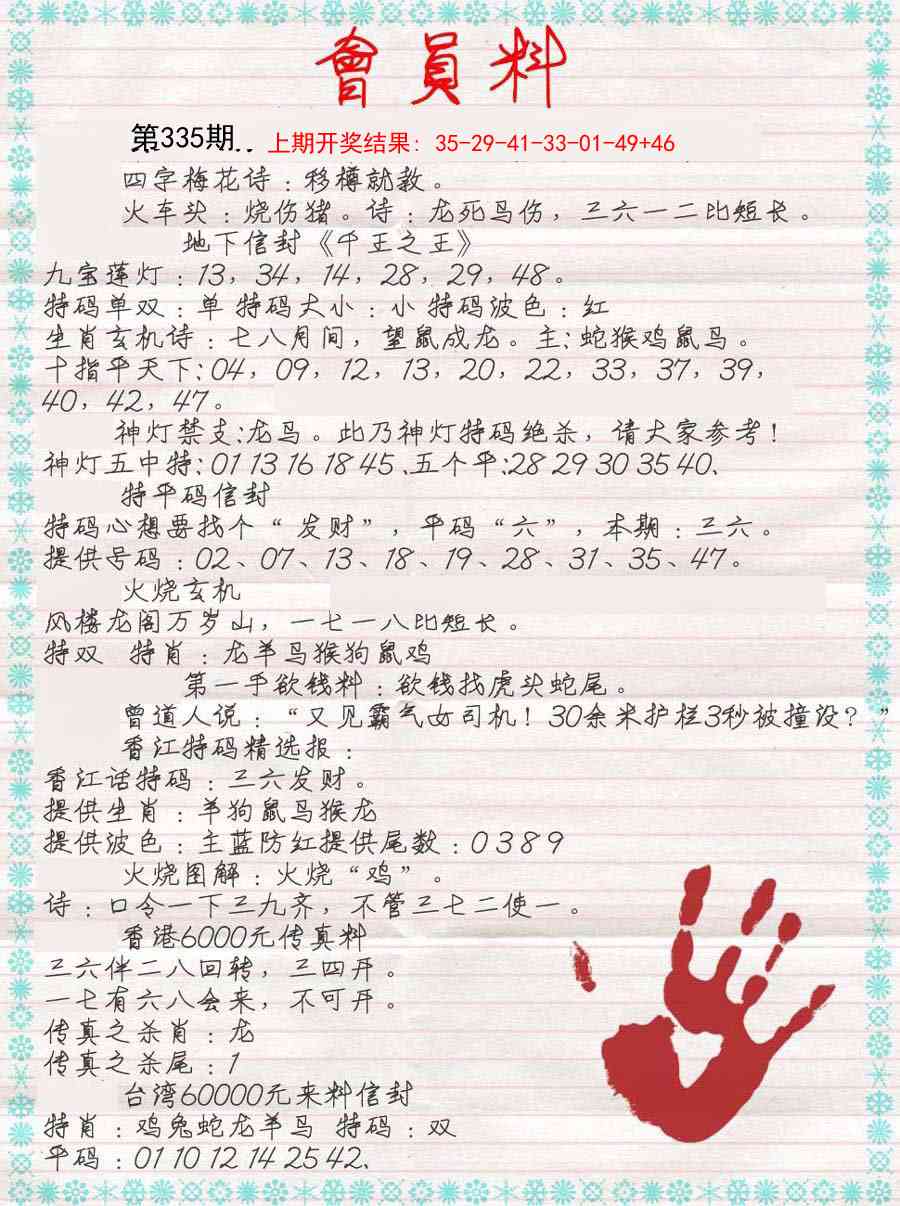 會員料
第335期.. 上期开奖结果：35-29-41-33-01-49+46
四字梅花诗：移樽就教。
火车头：烧伤猪。诗：龙死鸟伤，三六一二比短长。
地下信封《千王之王》
九宝莲灯：13，34，14，28，29，48。
特码单双：单 特码大小：小 特码波色：红
生肖玄机诗：七八月间，望鼠成龙。主：蛇猴鸡鼠马。
十指平天下：04，09，12，13，20，22，33，37，39，
40，42，47。
神灯禁支：龙马。此乃神灯特码绝杀，请大家参考！
神灯五中特：01 13 16 18 45、五个平：28 29 30 35 40、
特平码信封
特码心想要找个“发财”，平码“六”，本期：三六。
提供号码：02、07、13、18、19、28、31、35、47。
火烧玄机
风楼龙阁万岁山，一七一八比短长。
特双 特肖：龙羊马猴狗鼠鸡
第一手欲钱料：欲钱找虎头蛇尾。
曾道人说：“又见霸气女司机！30余米护栏3秒被撞没？”
香江特码精选报：
香江话特码：三六发财。
提供生肖：羊狗鼠马猴龙
提供波色：主蓝防红提供尾数：0 3 8 9
火烧图解：火烧“鸡”。
诗：口令一下三九齐，不管三七二使一。
香港6000元传真料
三六伴二八回转，三四开。
一七有六八会来，不可开。
传真之杀肖：龙
传真之杀尾：1
台湾60000元来料信封
特肖：鸡兔蛇龙羊马 特码：双
平码：01 10 12 14 25 42、